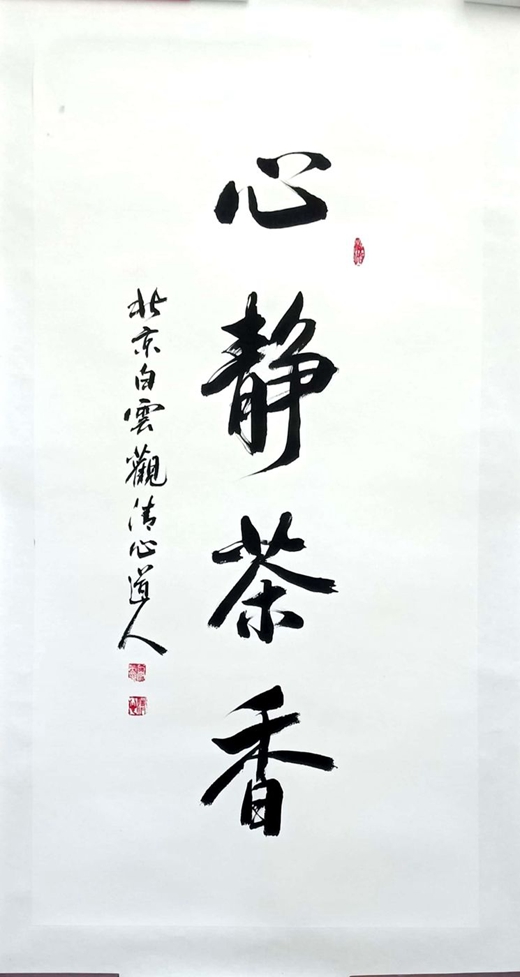 心静茶香
北京白雲觀清心道人